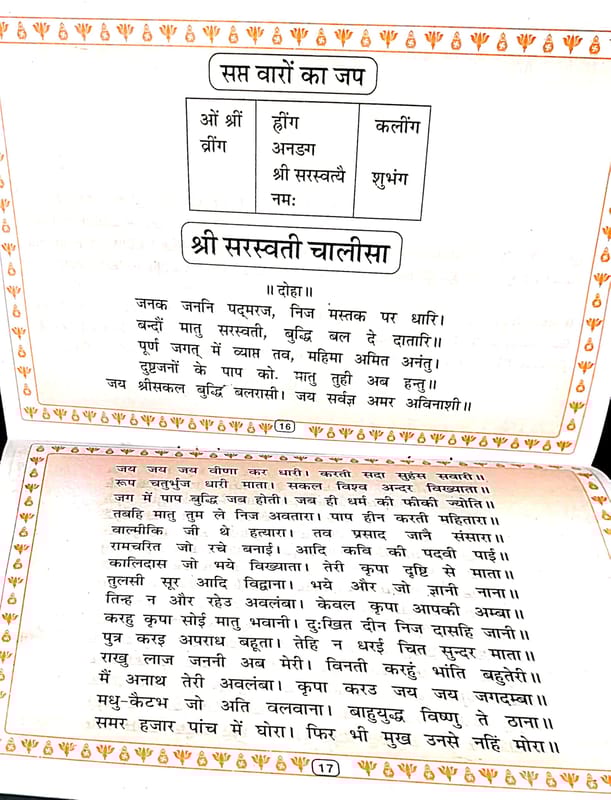 सप्त वारों का जप
ओं श्रीं ह्रींग कलींग
व्रींग अनङग
श्री सरस्वत्यै शुभंग
नमः
श्री सरस्वती चालीसा
॥दोहा॥
जनक जननि पद्मरज, निज मस्तक पर धारि।
बन्दौं मातु सरस्वती, बुद्धि बल दे दातारि॥
पूर्ण जगत् में व्याप्त तव, महिमा अमित अनंतु।
दुष्टजनों के पाप को, मातु तुही अब हन्तु॥
जय श्रीसकल बुद्धि बलरासी। जय सर्वज्ञ अमर अविनाशी॥
16
जय जय जय वीणा कर धारी। करती सदा सुहंस सवारी॥
रूप चतुर्भुज धारी माता। सकल विश्व अन्दर विख्याता॥
जग में पाप बुद्धि जब होती। जब ही धर्म की फीकी ज्योति॥
तबहि मातु तुम ले निज अवतारा। पाप हीन करती महितारा॥
बाल्मीकि जी थे हत्यारा। तव प्रसाद जानै संसारा॥
रामचरित जो रचे बनाई। आदि कवि की पदवी पाई॥
कालिदास जो भये विख्याता। तेरी कृपा दृष्टि से माता॥
तुलसी सूर आदि विद्वाना। भये और जो ज्ञानी नाना॥
तिन्ह न और रहेउ अवलंबा। केवल कृपा आपकी अम्बा॥
करहु कृपा सोई मातु भवानी। दुःखित दीन निज दासहि जानी॥
पुत्र करइ अपराध बहूता। तेहि न धरई चित सुन्दर माता॥
राखु लाज जननी अब मेरी। विनती करहुं भाँति बहुतेरी॥
मैं अनाथ तेरी अवलंबा। कृपा करउ जय जय जगदम्बा॥
मधु-कैटभ जो अति वलवाना। बाहुयुद्ध विष्णु ते ठाना॥
समर हजार पांच में घोरा। फिर भी मुख उनसे नहिं मोरा॥
17